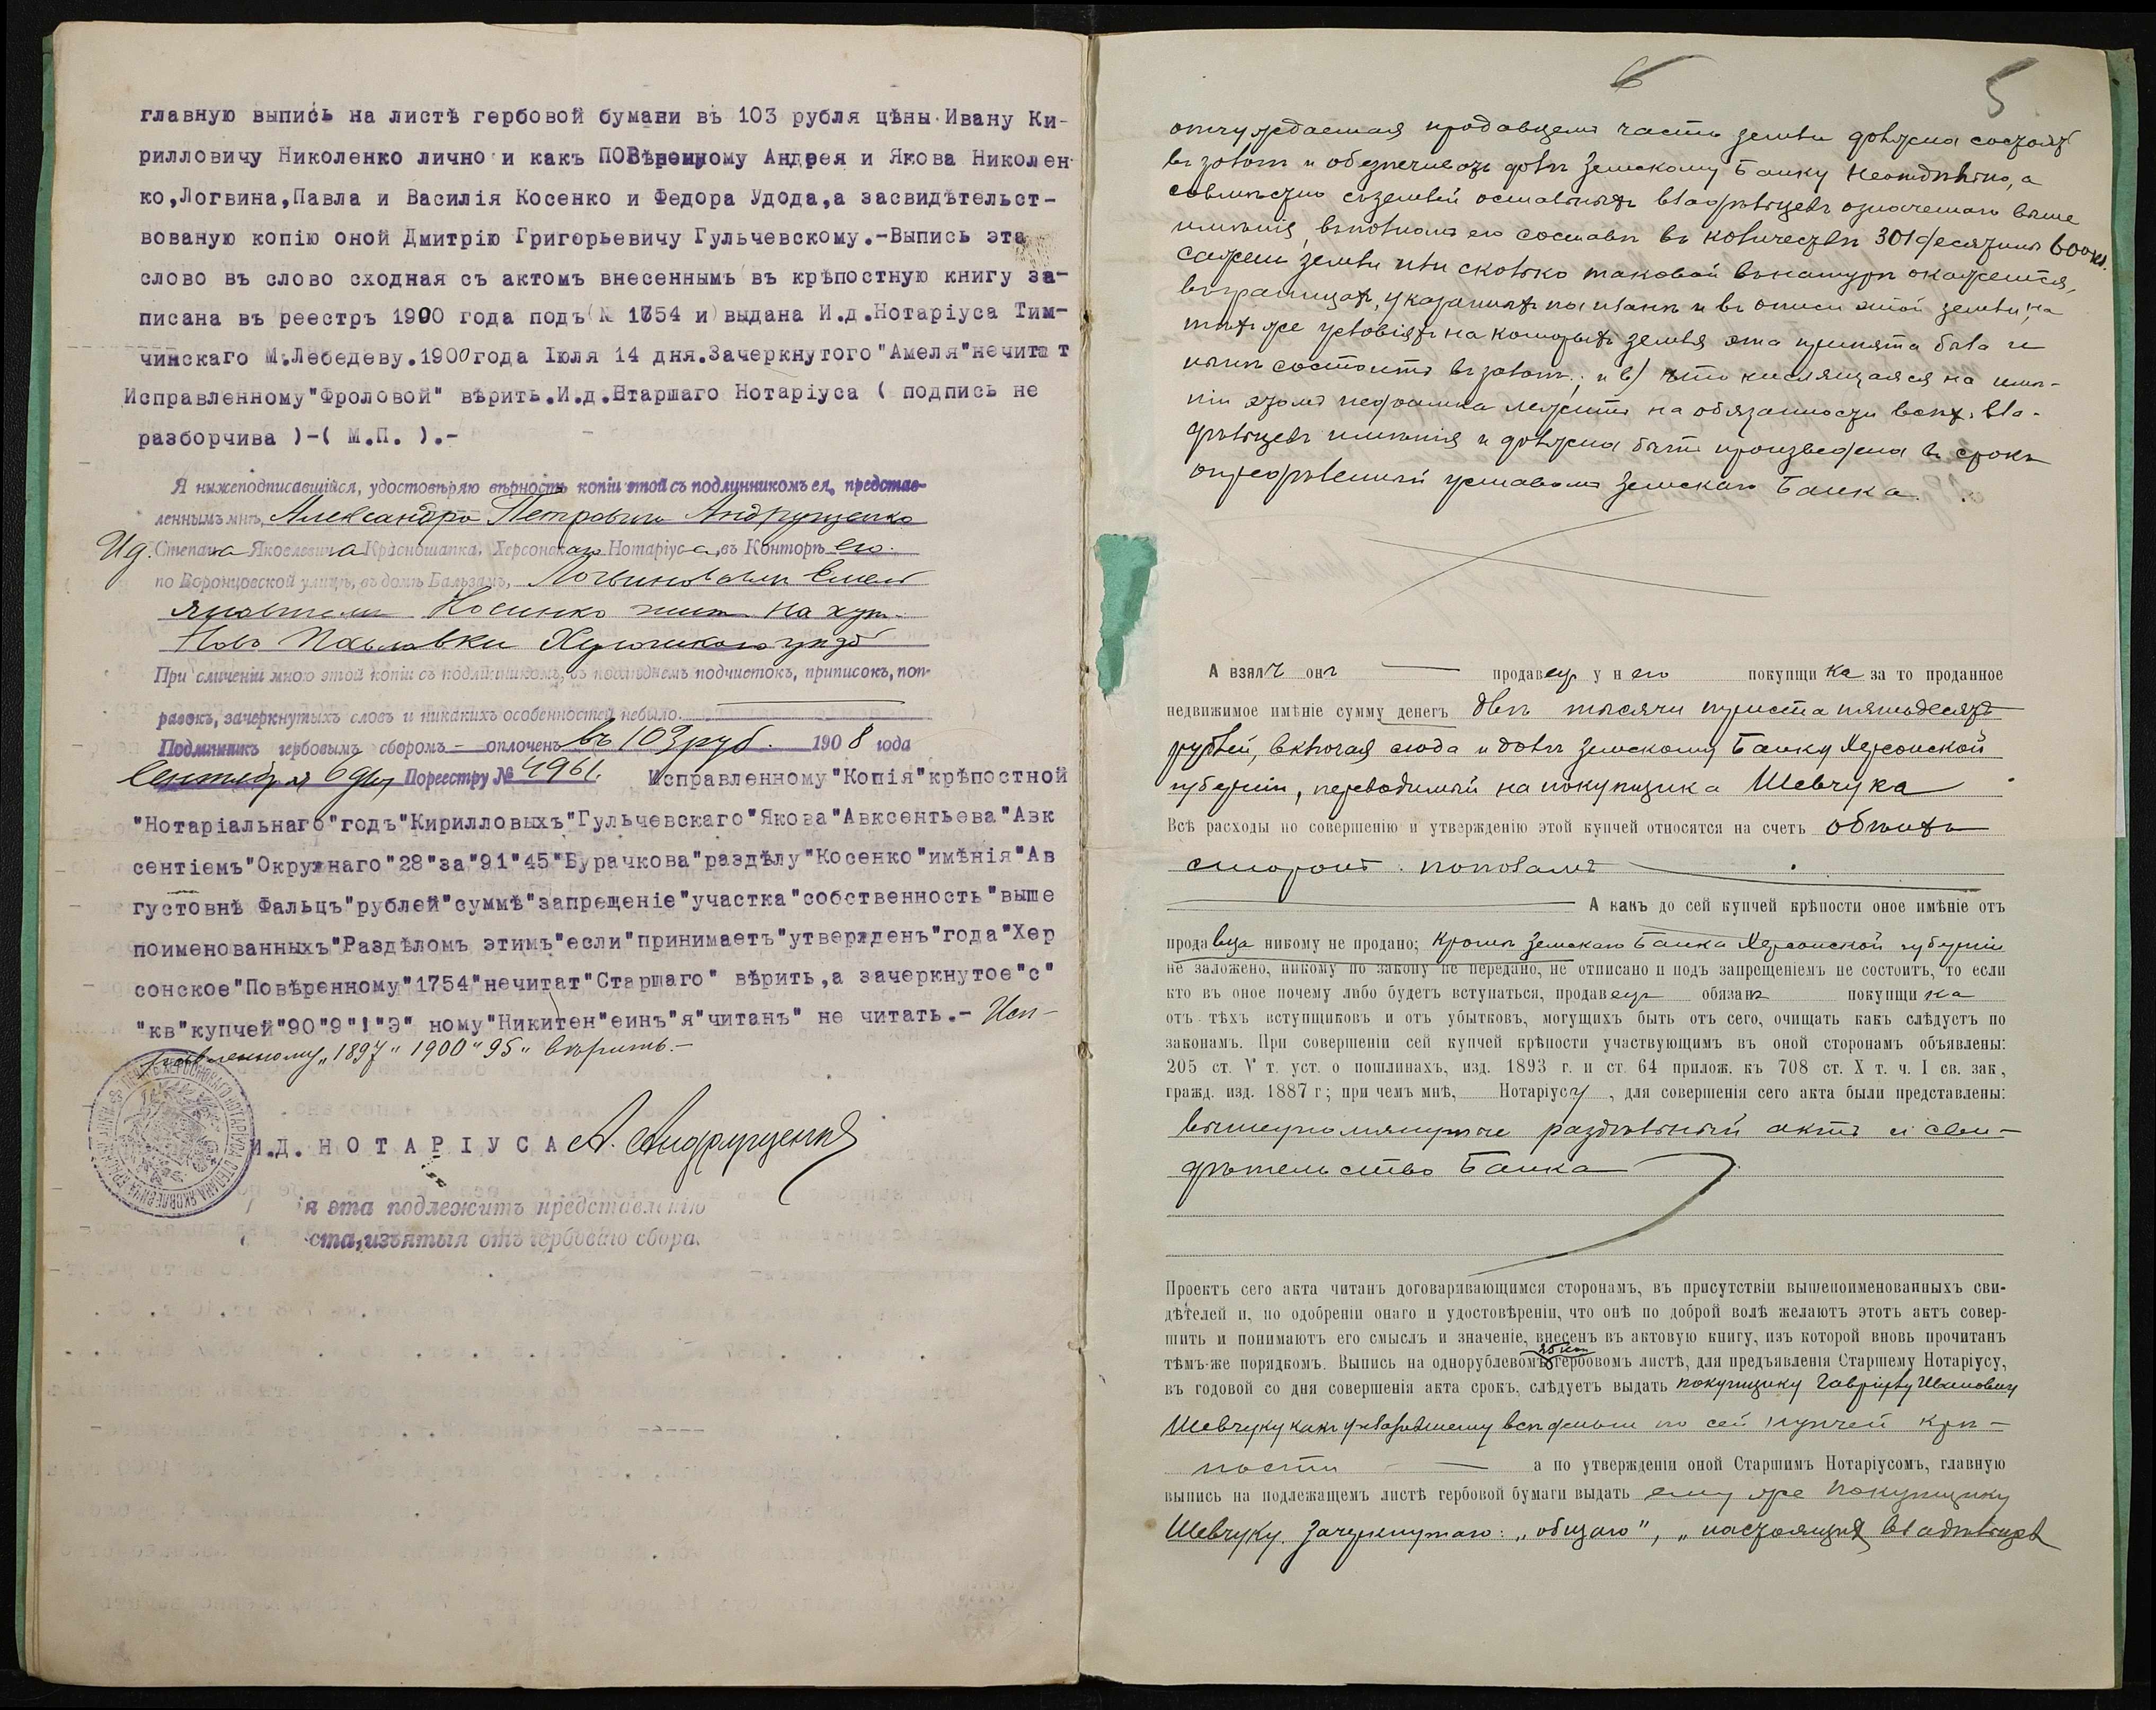 главную выпись на листѣ гербовой бумаги въ 103 рубля цѣны Ивану Ки-
рилловичу Николенко лично и какъ ПОВѣренному Андрея и Якова Николен-
ко,Логвина,Павла и Василія Косенко и Федора Удода,а засвидѣтельст-
вованую копію оной Дмитрію Григорьевичу Гульчевскому.-Выпись эта
слово въ слово сходная съ актомъ внесеннымъ въ крѣпостную книгу за-
писана въ реестръ 1900 года подъ (№ 1754 и) выдана И.д.Нотаріуса Тим-
чинскаго М.Лебедеву.1900 года Іюля 14 дня.Зачеркнутого "Амеля"нечитат
Исправленному"Фроловой" вѣрить.И.д.Старшаго Нотаріуса ( подпись не
разборчива )-( М.П. ).-
Я нижеподписавшійся, удостовѣряю вѣрность копіи этой съ подлинникомъ ея, представ-
леннымъ мнѣ, Александро Петровичу Андрущенко
И.д. Степана Яковлевича Красношапка, Херсонскаго Нотаріуса, въ Конторѣ его.
по Воронцовской улицѣ, въ домѣ Бальзамъ, Логвиномъ
Косинко жив. на хут.
Ново Павловки Херсонскаго уѣзд
При сличеніи мною этой копіи съ подлинникомъ, въ послѣднемъ подчистокъ, приписокъ, поп-
равокъ, зачеркнутыхъ словъ и никакихъ особенностей небыло.
Подлинникъ гербовымъ сборомъ - оплоченъ въ 103 руб. 1908 года
Сентября 6 дня Пореестру № 4961. Исправленному"Копія"крѣпостной
"Нотаріальнаго"годъ"Кирилловыхъ"Гульчевскаго"Якова"Авксентьева"Авк
сентіемъ"Окружнаго"28"за"91"45"Бурачкова"раздѣлу"Косенко"имѣнія"Ав
густовнѣ Фальцъ"рублей"суммѣ"запрещеніе"участка"собственность"выше
поименованныхъ"Раздѣломъ этимъ"если"принимаетъ"утвержденъ"года"Хер
сонское"Повѣренному"1754"нечитат"Старшаго" вѣрить,а зачеркнутое"с"
"кв"купчей"90"9"!"Э" ному"Никитен"еинъ"я"читанъ" не читать.- Исп-
равленному „1897" 1900 "95" вѣрить.-
И.Д. НОТАРІУСА А. Андрущенко
ія эта подлежитъ представленію
ста, изъятыя отъ гербоваго сбора.
6
5
отчуждаемая продавцемъ часть земли должна состоять
въ залогѣ и обезпечивать долгъ Земскому Банку нераздѣльно, а
совмѣстно съ землей остальныхъ владѣльцевъ означеннаго выше
имѣнія, въ полномъ его составѣ въ количествѣ 301 десятины 600 кв.
сажень земли или сколько таковой въ натурѣ окажется,
въ границахъ, указанныхъ на планѣ и въ описи этой земли, на
тѣхъ же условіяхъ на которыхъ земля эта принята была и
нынѣ состоитъ въ залогѣ; и в) что числящаяся на имѣ-
ніи этомъ недоимка лежитъ на обязанности всѣхъ вла-
дѣльцевъ имѣнія и должна быть произведена въ срокъ
опредѣленный уставомъ Земскаго Банка.
А взялъ онъ продавецъ у него покупщика за то проданное
недвижимое имѣніе сумму денегъ двѣ тысячи триста пятьдесятъ
рублей, включая сюда и долгъ Земскому Банку Херсонской
губерніи, переводимый на покупщика Шевчука
Всѣ расходы по совершенію и утвержденію этой купчей относятся на счетъ обѣихъ
сторонъ пополамъ
А какъ до сей купчей крѣпости оное имѣніе отъ
продавца никому не продано; кромѣ Земскаго Банка Херсонской губерніи
не заложено, никому по закону не передано, не отписано и подъ запрещеніемъ не состоитъ, то если
кто въ оное почему либо будетъ вступаться, продавецъ обязанъ покупщика
отъ тѣхъ вступщиковъ и отъ убытковъ, могущихъ быть отъ сего, очищать какъ слѣдуетъ по
законамъ. При совершеніи сей купчей крѣпости участвующимъ въ оной сторонамъ объявлены:
205 ст. V т. уст. о пошлинахъ, изд. 1893 г. и ст. 64 прилож. къ 708 ст. X т. ч. I св. зак.,
гражд. изд. 1887 г; при чемъ мнѣ, Нотаріусу, для совершенія сего акта были представлены:
вышеупомянутые раздѣльный актъ и сви-
дѣтельство Банка
Проектъ сего акта читанъ договаривающимся сторонамъ, въ присутствіи вышепоименованныхъ сви-
дѣтелей и, по одобреніи онаго и удостовѣреніи, что онѣ по доброй волѣ желаютъ этотъ актъ совер-
шить и понимаютъ его смыслъ и значеніе, внесенъ въ актовую книгу, изъ которой вновь прочитанъ
тѣмъ-же порядкомъ. Выпись на однорублевомъ 25 коп гербовомъ листѣ, для предъявленія Старшему Нотаріусу,
въ годовой со дня совершенія акта срокъ, слѣдуетъ выдать покупщику Гавріилу Ивановичу
Шевчуку какъ уплатившему всѣ деньги по сей купчей крѣ-
пости а по утвержденіи оной Старшимъ Нотаріусомъ, главную
выпись на подлежащемъ листѣ гербовой бумаги выдать ему же покупщику
Шевчуку. Зачеркнутаго: „общаго", „настоящихъ владѣльцев